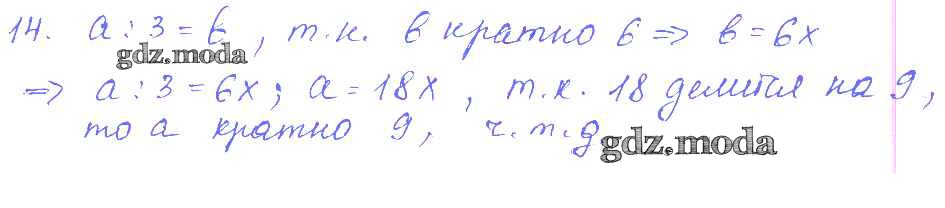 14. a : 3 = в, т.к. в кратно 6 => в = 6x
gdz.moda
=> a : 3 = 6x; a = 18x, т.к. 18 делится на 9,
то а кратно 9, ч.т.д.
gdz.moda